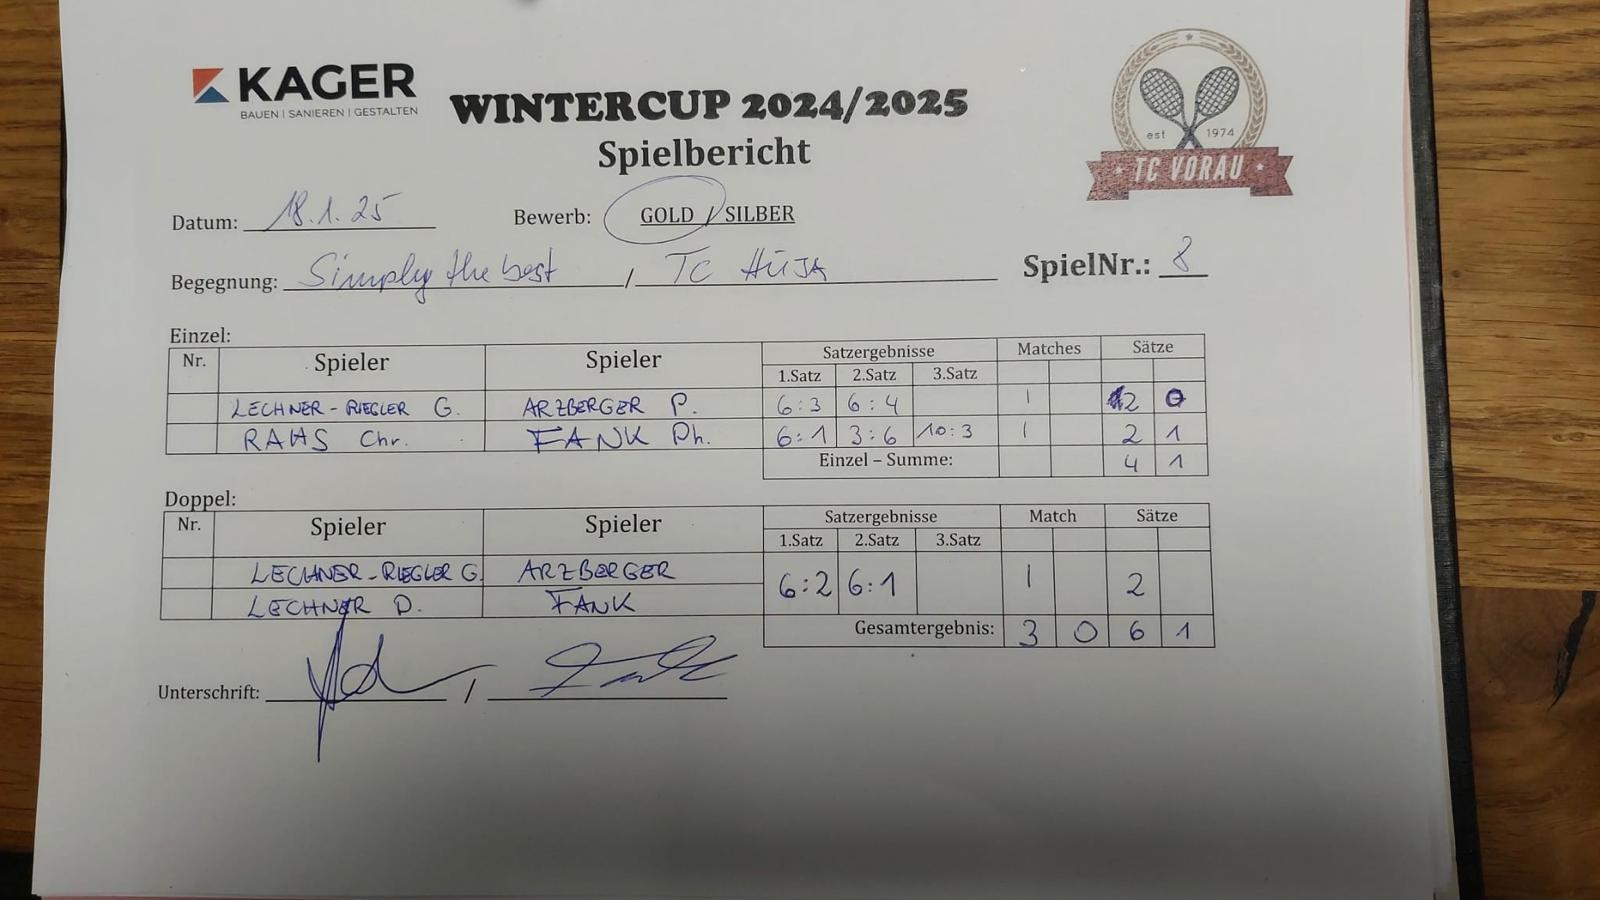 KAGER
BAUEN | SANIEREN | GESTALTEN
WINTERCUP 2024/2025
Spielbericht
est 1974
TC VORAU
Datum: 18.1.25 Bewerb: GOLD / SILBER
Begegnung: Simply the best / TC HÜJA SpielNr.: 8
Einzel:
Nr. Spieler Spieler Satzergebnisse Matches Sätze
1.Satz 2.Satz 3.Satz
LECHNER-RIEGLER G. ARZBERGER P. 6:3 6:4 1 2 0
RAHS Chr. FANK Ph. 6:1 3:6 10:3 1 2 1
Einzel – Summe: 4 1
Doppel:
Nr. Spieler Spieler Satzergebnisse Match Sätze
1.Satz 2.Satz 3.Satz
LECHNER-RIEGLER G. ARZBERGER 6:2 6:1 1 2
LECHNER D. FANK
Gesamtergebnis: 3 0 6 1
Unterschrift: /